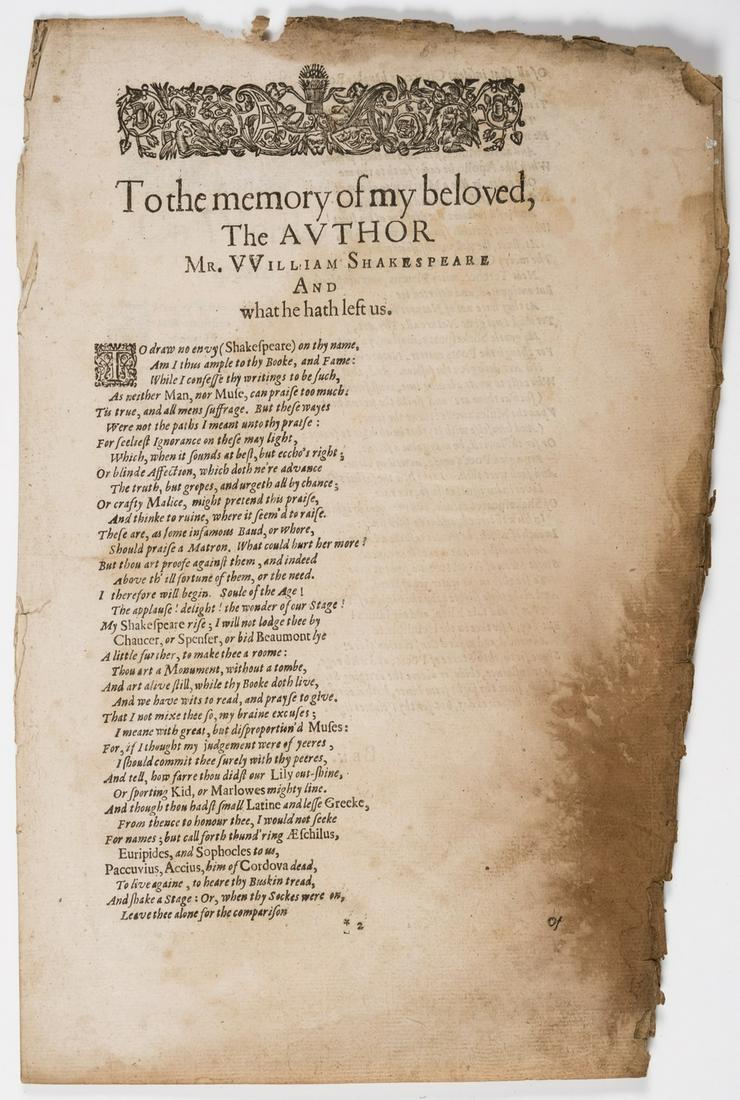 To the memory of my beloved,
The AVTHOR
MR. VVILLIAM SHAKESPEARE
AND
what he hath left us.
TO draw no envy (Shakeſpeare) on thy name,
Am I thus ample to thy Booke, and Fame:
While I confeſſe thy writings to be ſuch,
As neither Man, nor Muſe, can praiſe too much.
Tis true, and all mens ſuffrage. But theſe wayes
Were not the paths I meant unto thy praiſe:
For ſeelieſt Ignorance on theſe may light,
Which, when it ſounds at beſt, but eccho's right;
Or blinde Affection, which doth ne're advance
The truth, but gropes, and urgeth all by chance;
Or crafty Malice, might pretend this praiſe,
And thinke to ruine, where it ſeem'd to raiſe.
Theſe are, as ſome infamous Baud, or Whore,
Should praiſe a Matron. What could hurt her more?
But thou art proofe againſt them, and indeed
Above th' ill fortune of them, or the need.
I therefore will begin. Soule of the Age!
The applauſe! delight! the wonder of our Stage!
My Shakeſpeare riſe; I will not lodge thee by
Chaucer, or Spenſer, or bid Beaumont lye
A little further, to make thee a roome:
Thou art a Monument, without a tombe,
And art alive ſtill, while thy Booke doth live,
And we have wits to read, and prayſe to give.
That I not mixe thee ſo, my braine excuſes;
I meane with great, but diſproportion'd Muſes:
For, if I thought my judgement were of yeeres,
I ſhould commit thee ſurely with thy peeres,
And tell, how farre thou didſt our Lily out-ſhine,
Or ſporting Kid, or Marlowes mighty line.
And though thou hadſt ſmall Latine and leſſe Greeke,
From thence to honour thee, I would not ſeeke
For names; but call forth thund'ring Æſchilus,
Euripides, and Sophocles to us,
Paccuvius, Accius, him of Cordova dead,
To live againe, to heare thy Buskin tread,
And ſhake a Stage: Or, when thy Sockes were on,
Leave thee alone for the compariſon
* 2
Of